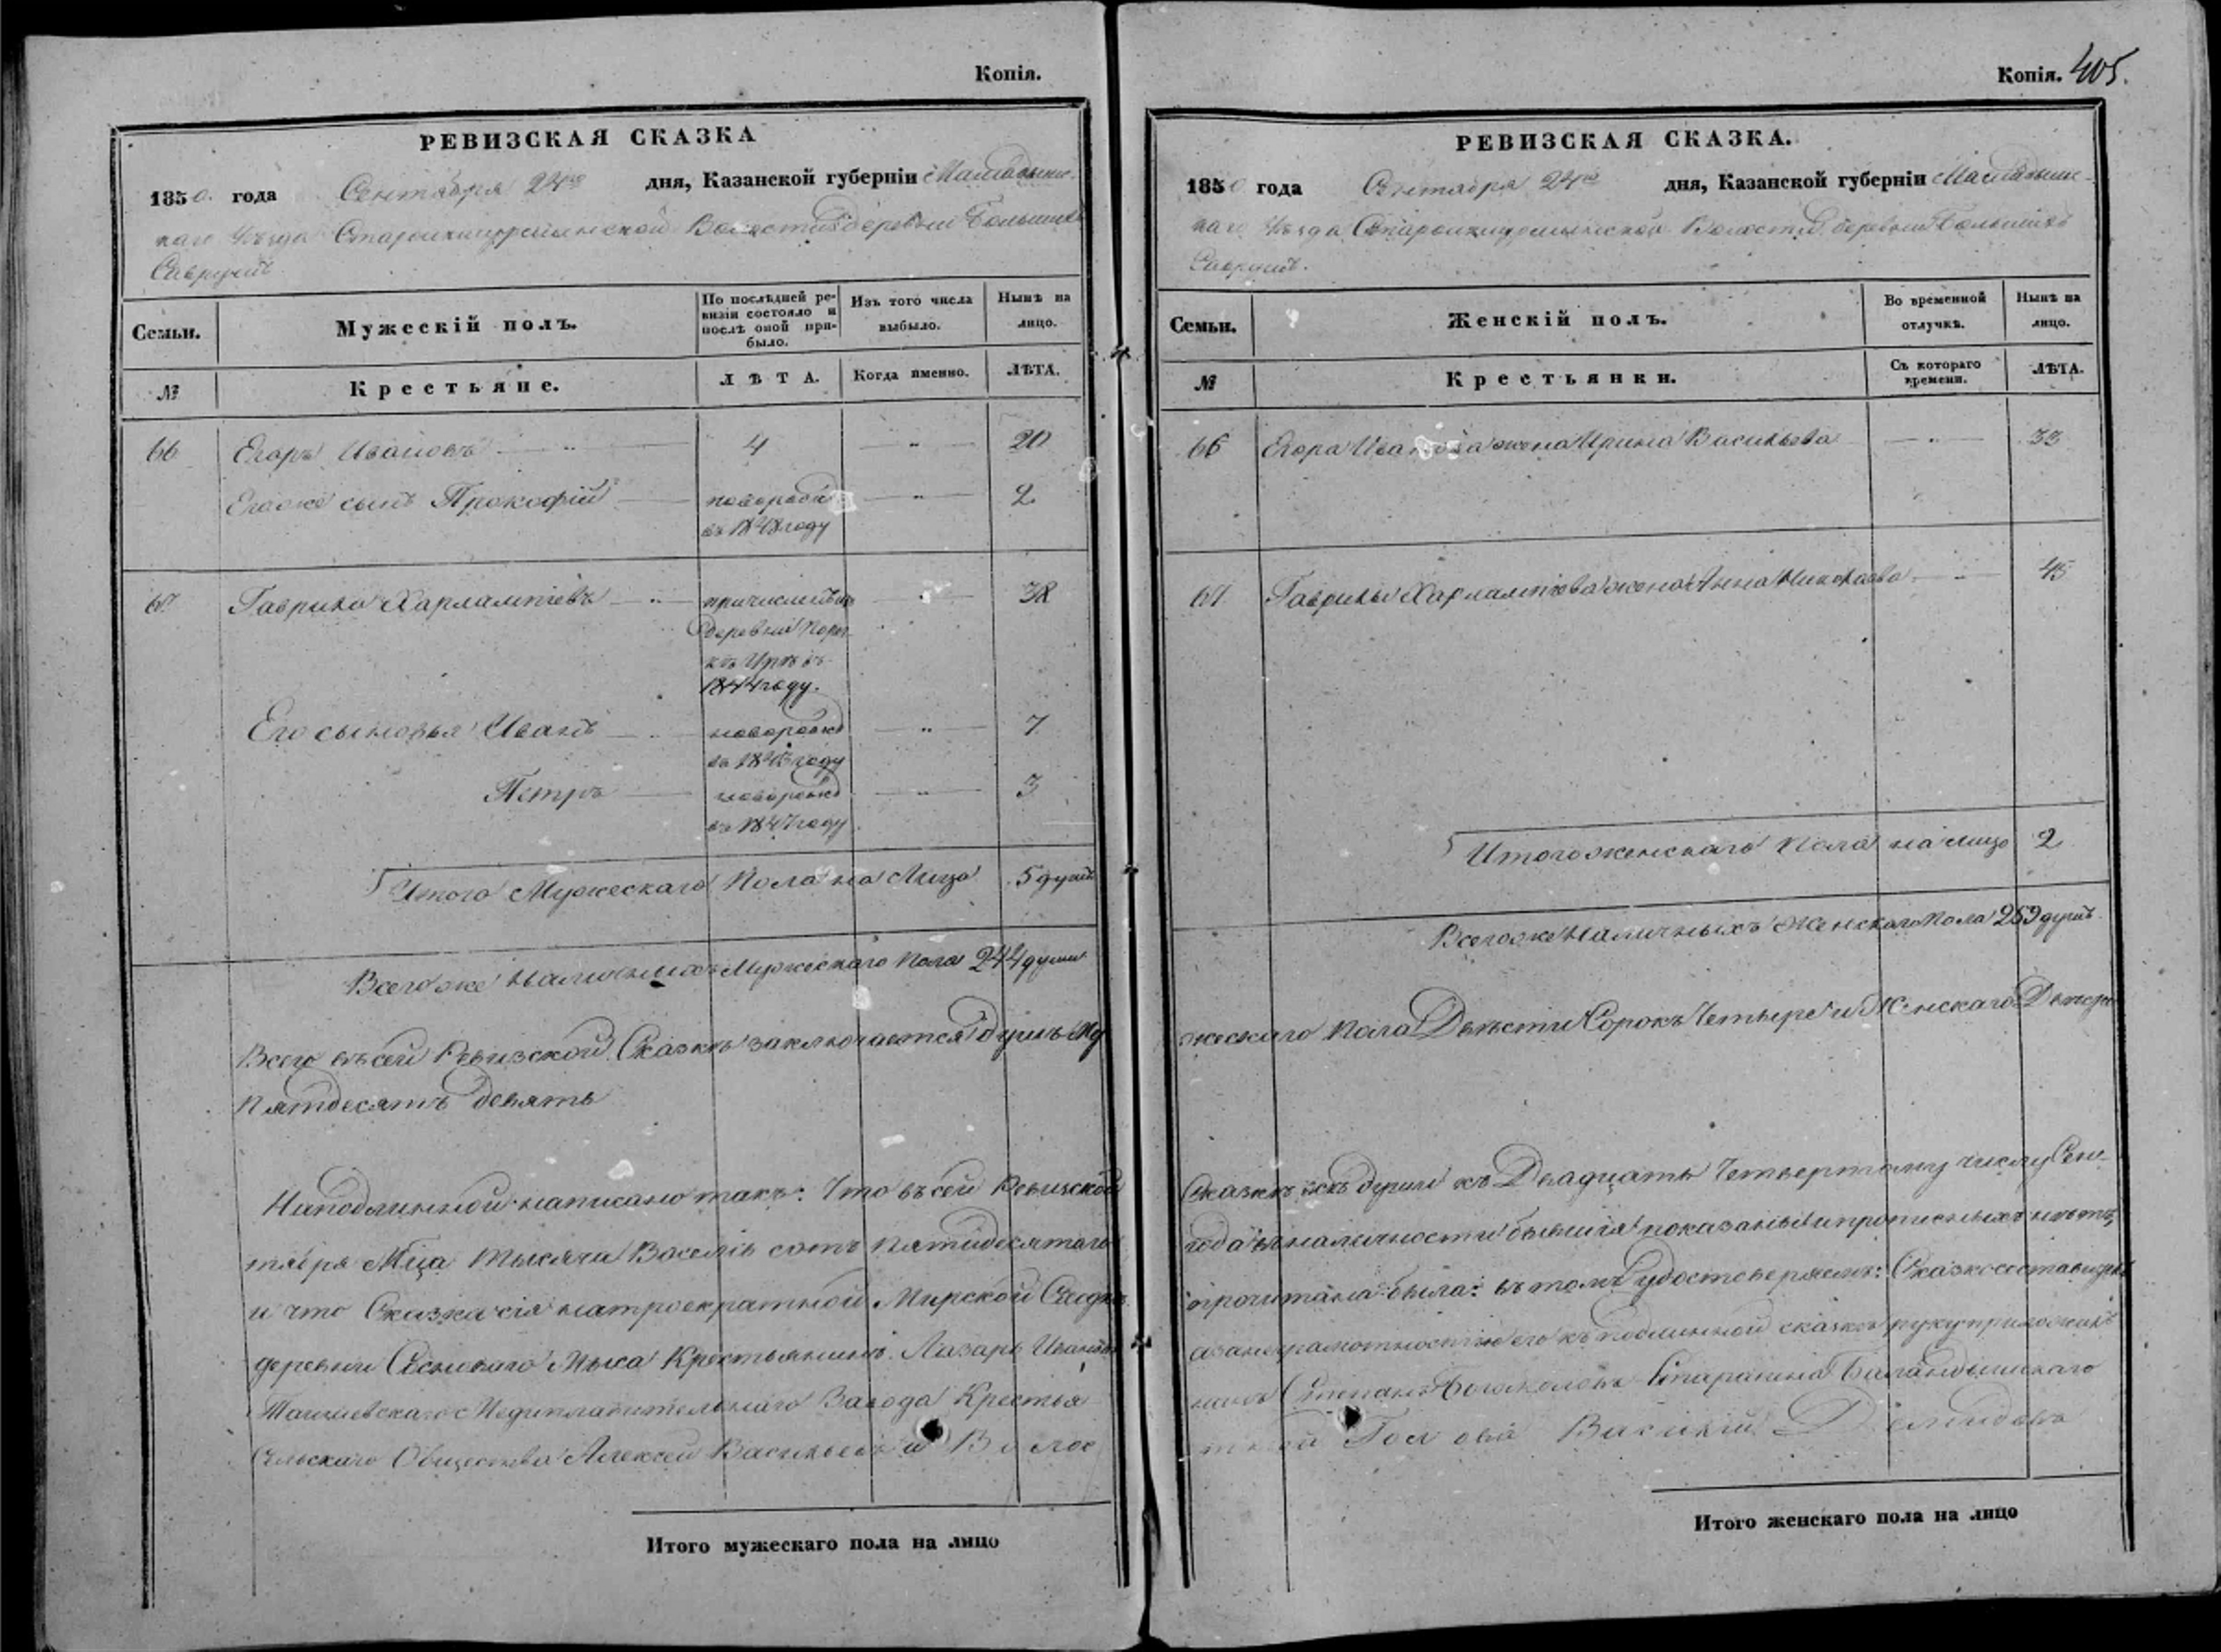 Копія.
РЕВИЗСКАЯ СКАЗКА
1850. года Сентября 24го дня, Казанской губерніи Мамадышс-
каго Уѣзда Волости деревни Большихъ
Саврушъ
Семьи. Мужескій полъ. По послѣдней ре- визіи состояло и послѣ оной при- было. Изъ того числа выбыло. Нынѣ на лицо.
№ Крестьяне. ЛѢТА. Когда именно. ЛѢТА.
66 Егоръ Ивановъ — „ — 4 — „ — 20
Егоже сынъ Прокофій — новорожд — „ — 2
въ 1848 году
67 Гаврило Харлампіевъ — „ — причисленъ — „ — 38
деревни
1844 году.
Его сыновья Иванъ — „ — новорожд — „ — 7
въ 1843 году
Петръ — новорожд — „ — 3
въ 1847 году
Итого Мужескаго Пола на Лицо 5 душъ
Всего же Наличныхъ Мужескаго Пола 244 души
Всего въ сей Ревизской Сказкѣ заключается душъ Му
Пятдесятъ девять
На подлинной написано такъ: Что въ сей Ревизской
тября Мца тысяча Восемь сотъ пятидесятаго
и что Сказка сія на троекратной Мирской Сходкѣ
деревни Сосноваго Мыса Крестьянинъ Лазарь Ивановъ
Таишевскаго Медиплавительнаго Завода Крестья
Сельскаго Общества Алексей Васильевъ и Волос
Итого мужескаго пола на лицо
Копія. 405.
РЕВИЗСКАЯ СКАЗКА.
1850 года Сентября 24го дня, Казанской губерніи Мамадышс-
каго Уѣзда Волости деревни Большихъ
Саврушъ.
Семьи. Женскій полъ. Во временной отлучкѣ. Нынѣ на лицо.
№ Крестьянки. Съ котораго времени. ЛѢТА.
66 Егора Иванова жена Ирина Васильева — „ — 33
67 Гаврилы Харлампіева жена Анна Николаева — „ — 45
Итого женскаго Пола на лицо 2
Всего же Наличныхъ Женскаго Пола 259 душъ
жескаго пола Двѣсти Сорокъ Четыре и Женскаго Двѣсти
Сказкѣ всѣ души къ Двадцать Четвертому числу Сен-
года въ наличности бывшія показаны и прописныхъ нѣтъ,
прочитана была: въ томъ удостоверяемъ: Сказкосоставитель
а за неграмотностію его къ подлинной сказкѣ руку приложилъ
нинъ Степанъ Старшина Баландышскаго
тной Голова Василій Демидовъ
Итого женскаго пола на лицо